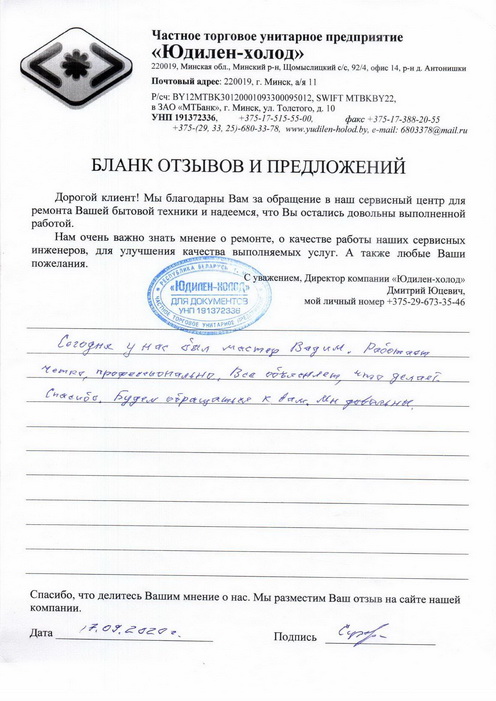 Частное торговое унитарное предприятие
«Юдилен-холод»
220019, Минская обл., Минский р-н, Щомыслицкий с/с, 92/4, офис 14, р-н д. Антонишки
Почтовый адрес: 220019, г. Минск, а/я 11
Р/сч: BY12MTBK30120001093300095012, SWIFT MTBKBY22,
в ЗАО «МТБанк», г. Минск, ул. Толстого, д. 10
УНП 191372336, +375-17-515-55-00, факс +375-17-388-20-55
+375-(29, 33, 25)-680-33-78, www.yudilen-holod.by, e-mail: 6803378@mail.ru
БЛАНК ОТЗЫВОВ И ПРЕДЛОЖЕНИЙ
Дорогой клиент! Мы благодарны Вам за обращение в наш сервисный центр для
ремонта Вашей бытовой техники и надеемся, что Вы остались довольны выполненной
работой.
Нам очень важно знать мнение о ремонте, о качестве работы наших сервисных
инженеров, для улучшения качества выполняемых услуг. А также любые Ваши
пожелания.
С уважением, Директор компании «Юдилен-холод»
Дмитрий Юцевич,
мой личный номер +375-29-673-35-46
РЕСПУБЛИКА БЕЛАРУСЬ
«ЮДИЛЕН-ХОЛОД»
ДЛЯ ДОКУМЕНТОВ
УНП 191372336
ЧАСТНОЕ ТОРГОВОЕ УНИТАРНОЕ
Сегодня у нас был мастер Вадим. Работает
четко, профессионально. Все объясняет, что делает.
Спасибо. Будем обращаться к вам. Мы довольны.
Спасибо, что делитесь Вашим мнение о нас. Мы разместим Ваш отзыв на сайте нашей
компании.
Дата 17.09.2020 г. Подпись